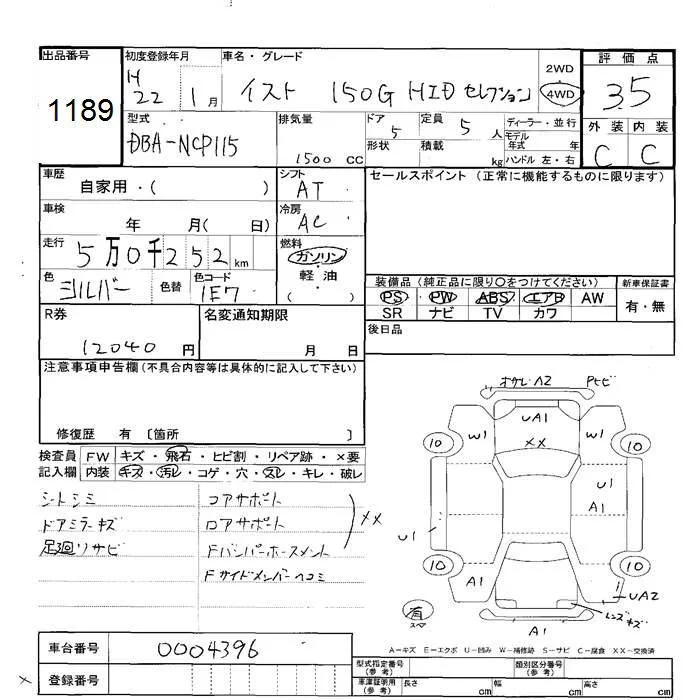 出品番号 初度登録年月 車名・グレード 評価点
1189
H 22 1月 イスト 150G HID セレクション 2WD 4WD 3.5
型式 排気量 ドア 定員 ディーラー・並行 外装 内装
DBA-NCP115 1500 CC 5 5人 モデル年式 年 C C
形状 積載 kg ハンドル 左・右
車歴 自家用・( ) シフト AT セールスポイント (正常に機能するものに限ります)
車検 年 月( 日) 冷房 AC
走行 5万0千252km 燃料 ガソリン・軽油 ( )
色 シルバー 色替 色コード 1E7 装備品 (純正品に限り〇をつけてください) 新車保証書
PS PW ABS エアB AW 有・無
SR ナビ TV カワ
R券 12040円 名変通知期限 月 日 後日品
注意事項申告欄 (不具合内容等は具体的に記入して下さい)
修復歴 有 〔箇所 〕
検査員 FW キズ・飛石・ヒビ割・リペア跡・×要
記入欄 内装 キズ・汚レ・コゲ・穴・スレ・キレ・破レ
シートシミ コアサポート
ドアミラーキズ ロアサポート XX
足廻リサビ Fバンパーホースメント
Fサイドメンバーヘコミ
A2 Pヒビ
UA1
10 W1 XX W1 10
U1
A1
U1
10 A1 10
UA2
有 スペア レンズキズ
A1
A-キズ E-エクボ U-凹み W-補修跡 S-サビ C-腐食 XX-交換済
車台番号 0004396
登録番号
型式指定番号 (参考) 類別区分番号 (参考)
車庫証明用 (参考) 長さ cm 幅 cm 高さ cm